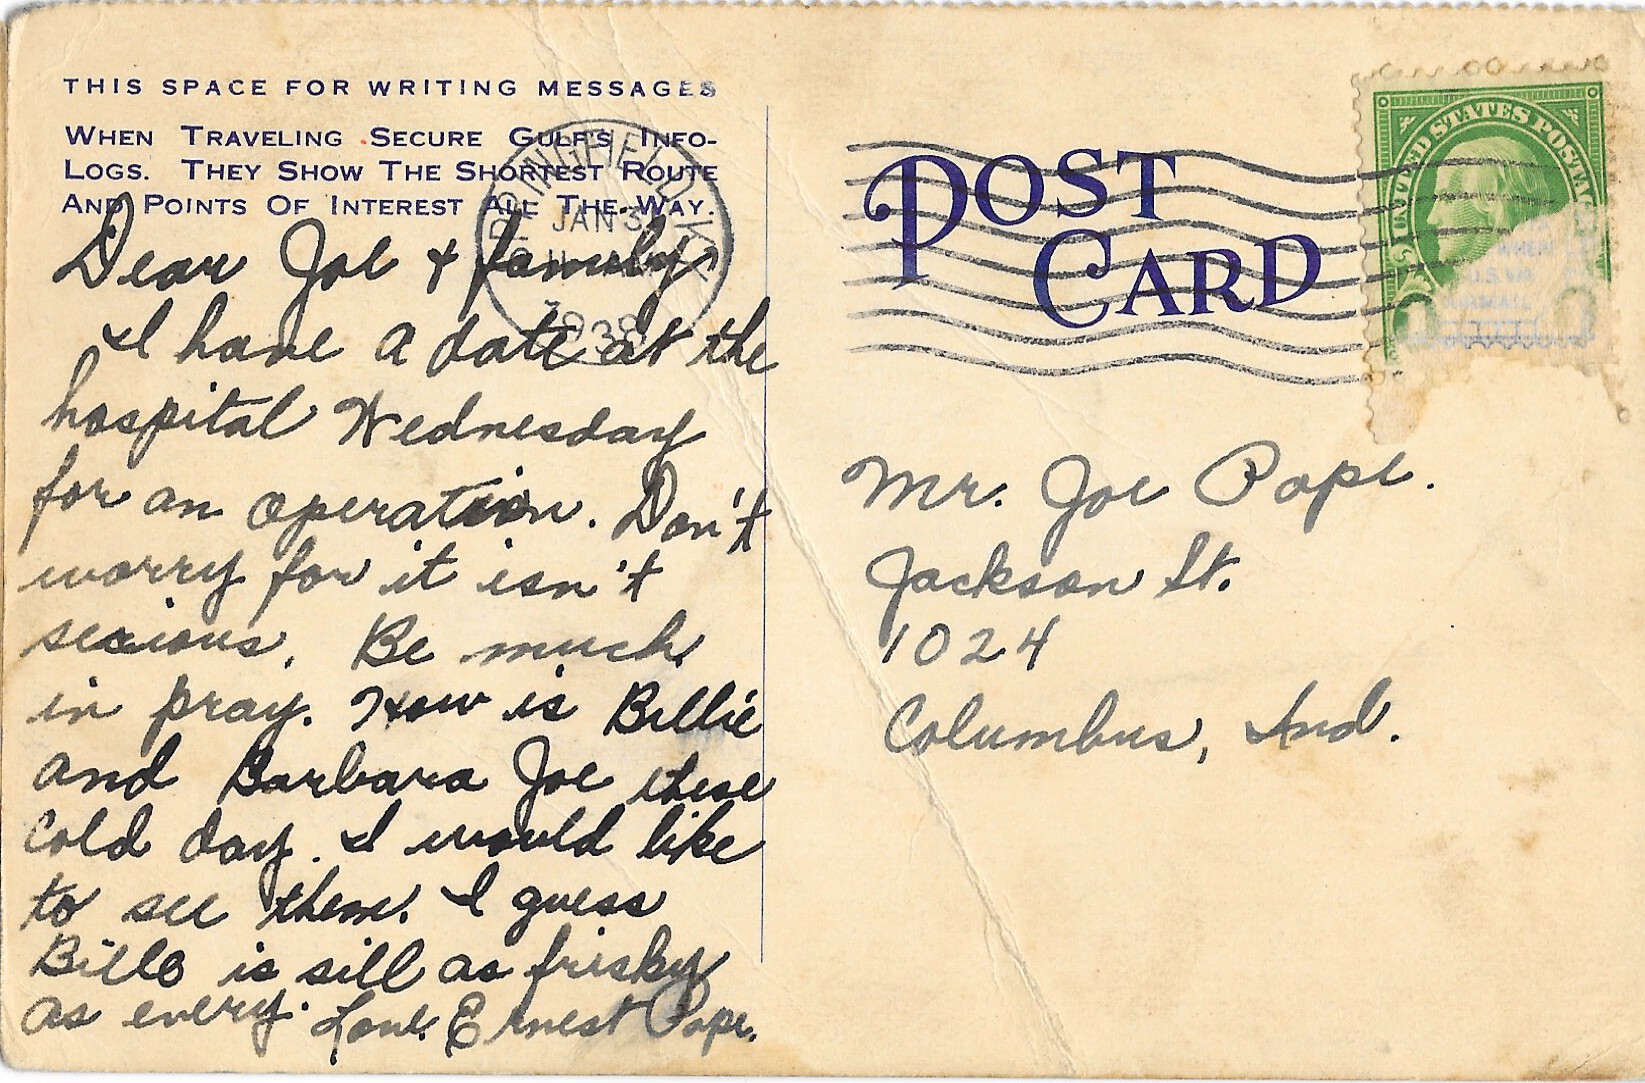 THIS SPACE FOR WRITING MESSAGES
WHEN TRAVELING SECURE GULF'S INFO-
LOGS. THEY SHOW THE SHORTEST ROUTE
AND POINTS OF INTEREST ALL THE WAY.
Dear Joe + family
I have a date at the
hospital Wednesday
for an operation. Don't
worry for it isn't
serious. Be much
in pray. How is Billie
and Barbara Joe these
cold day. I would like
to see them. I guess
Bille is sill as frisky
as every. Love. Ernest Pope.
JAN 3
POST
CARD
UNITED STATES POSTAGE
Mr. Joe Pope.
Jackson St.
1024
Columbus, Ind.